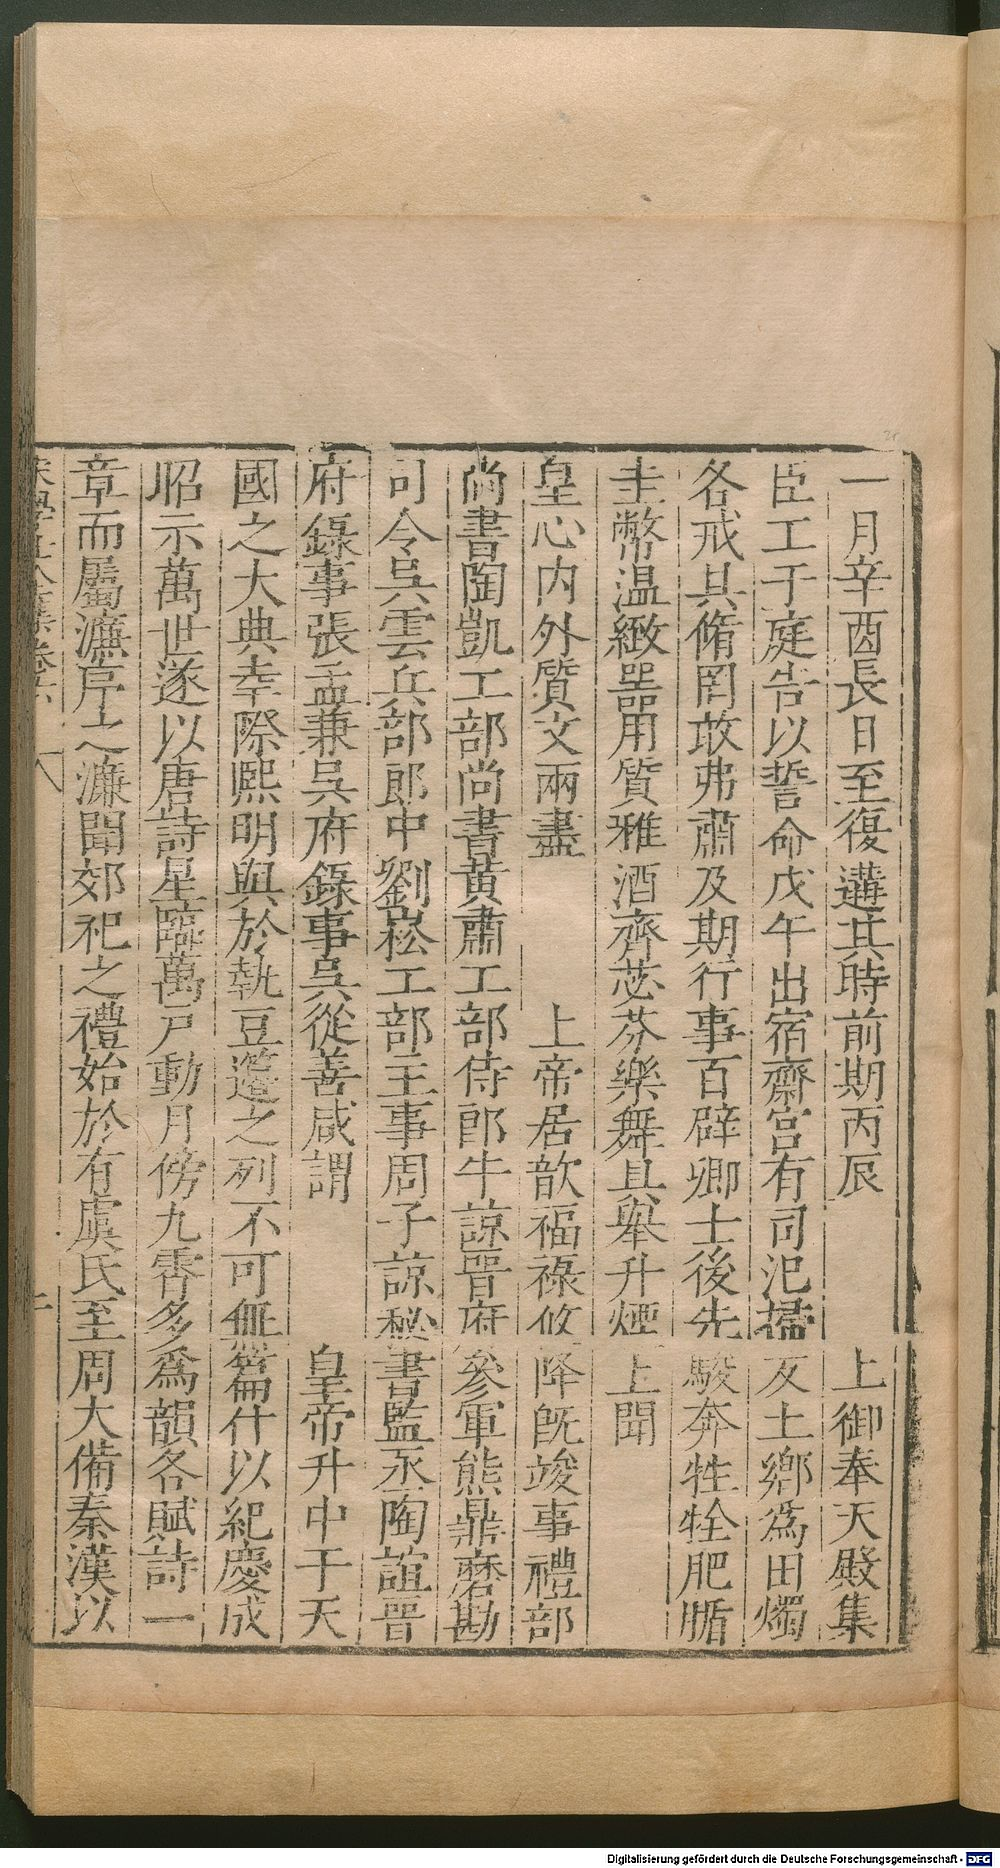 一月辛酉長日至復遘其時前期丙辰　　上御奉天殿集
臣工于庭告以誓命戊午出宿齋宮有司汜掃反土鄉爲田燭
各戒具脩罔敢弗肅及期行事百辟卿士後先駿奔牲牷肥腯
圭幣温緻噐用質雅酒齊苾芬樂舞具舉升煙上聞
皇心内外質文兩盡　　上帝居歆福祿攸降旣竣事禮部
尚書陶凱工部尚書黄肅工部侍郎牛諒晉府參軍熊鼎磨勘
司令吳雲兵部郎中劉崧工部主事周子諒秘書監丞陶誼晉
府錄事張孟兼吳府錄事吳從善咸謂　　皇帝升中于天
國之大典幸際熙明與於執豆籩之列不可無篇什以紀慶成
昭示萬世遂以唐詩星臨萬戸動月傍九霄多爲韻各賦詩一
章而屬濂序之濂聞郊祀之禮始於有虞氏至周大備秦漢以
宋學士全集卷六　八
Digitalisierung gefördert durch die Deutsche Forschungsgemeinschaft - DFG